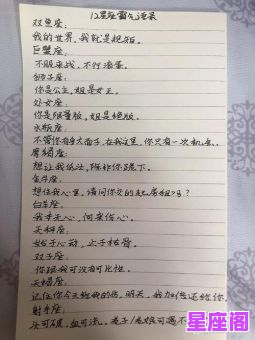 12星座霸气语录
双鱼座:
我的世界,我就是规矩。
巨蟹座:
不服来战,不行滚蛋。
狮子座:
你是公主,姐是女王。
处女座:
你是限量版,姐是绝版。
水瓶座:
不管你有多大面子,在我这里,你只有一次机会。
摩羯座:
想让我低头,除非你跪下。
金牛座:
想住我心里,请问你交的起房租吗?
白羊座:
我本无心,何来伤心。
天秤座:
始于心动,止于枯骨。
双子座:
你跟我可没有可比性。
天蝎座:
记住你今天给我的伤,明天,我加倍还给你。
射手座:
头可破,血可流,老子/老娘可遇不
星座阁